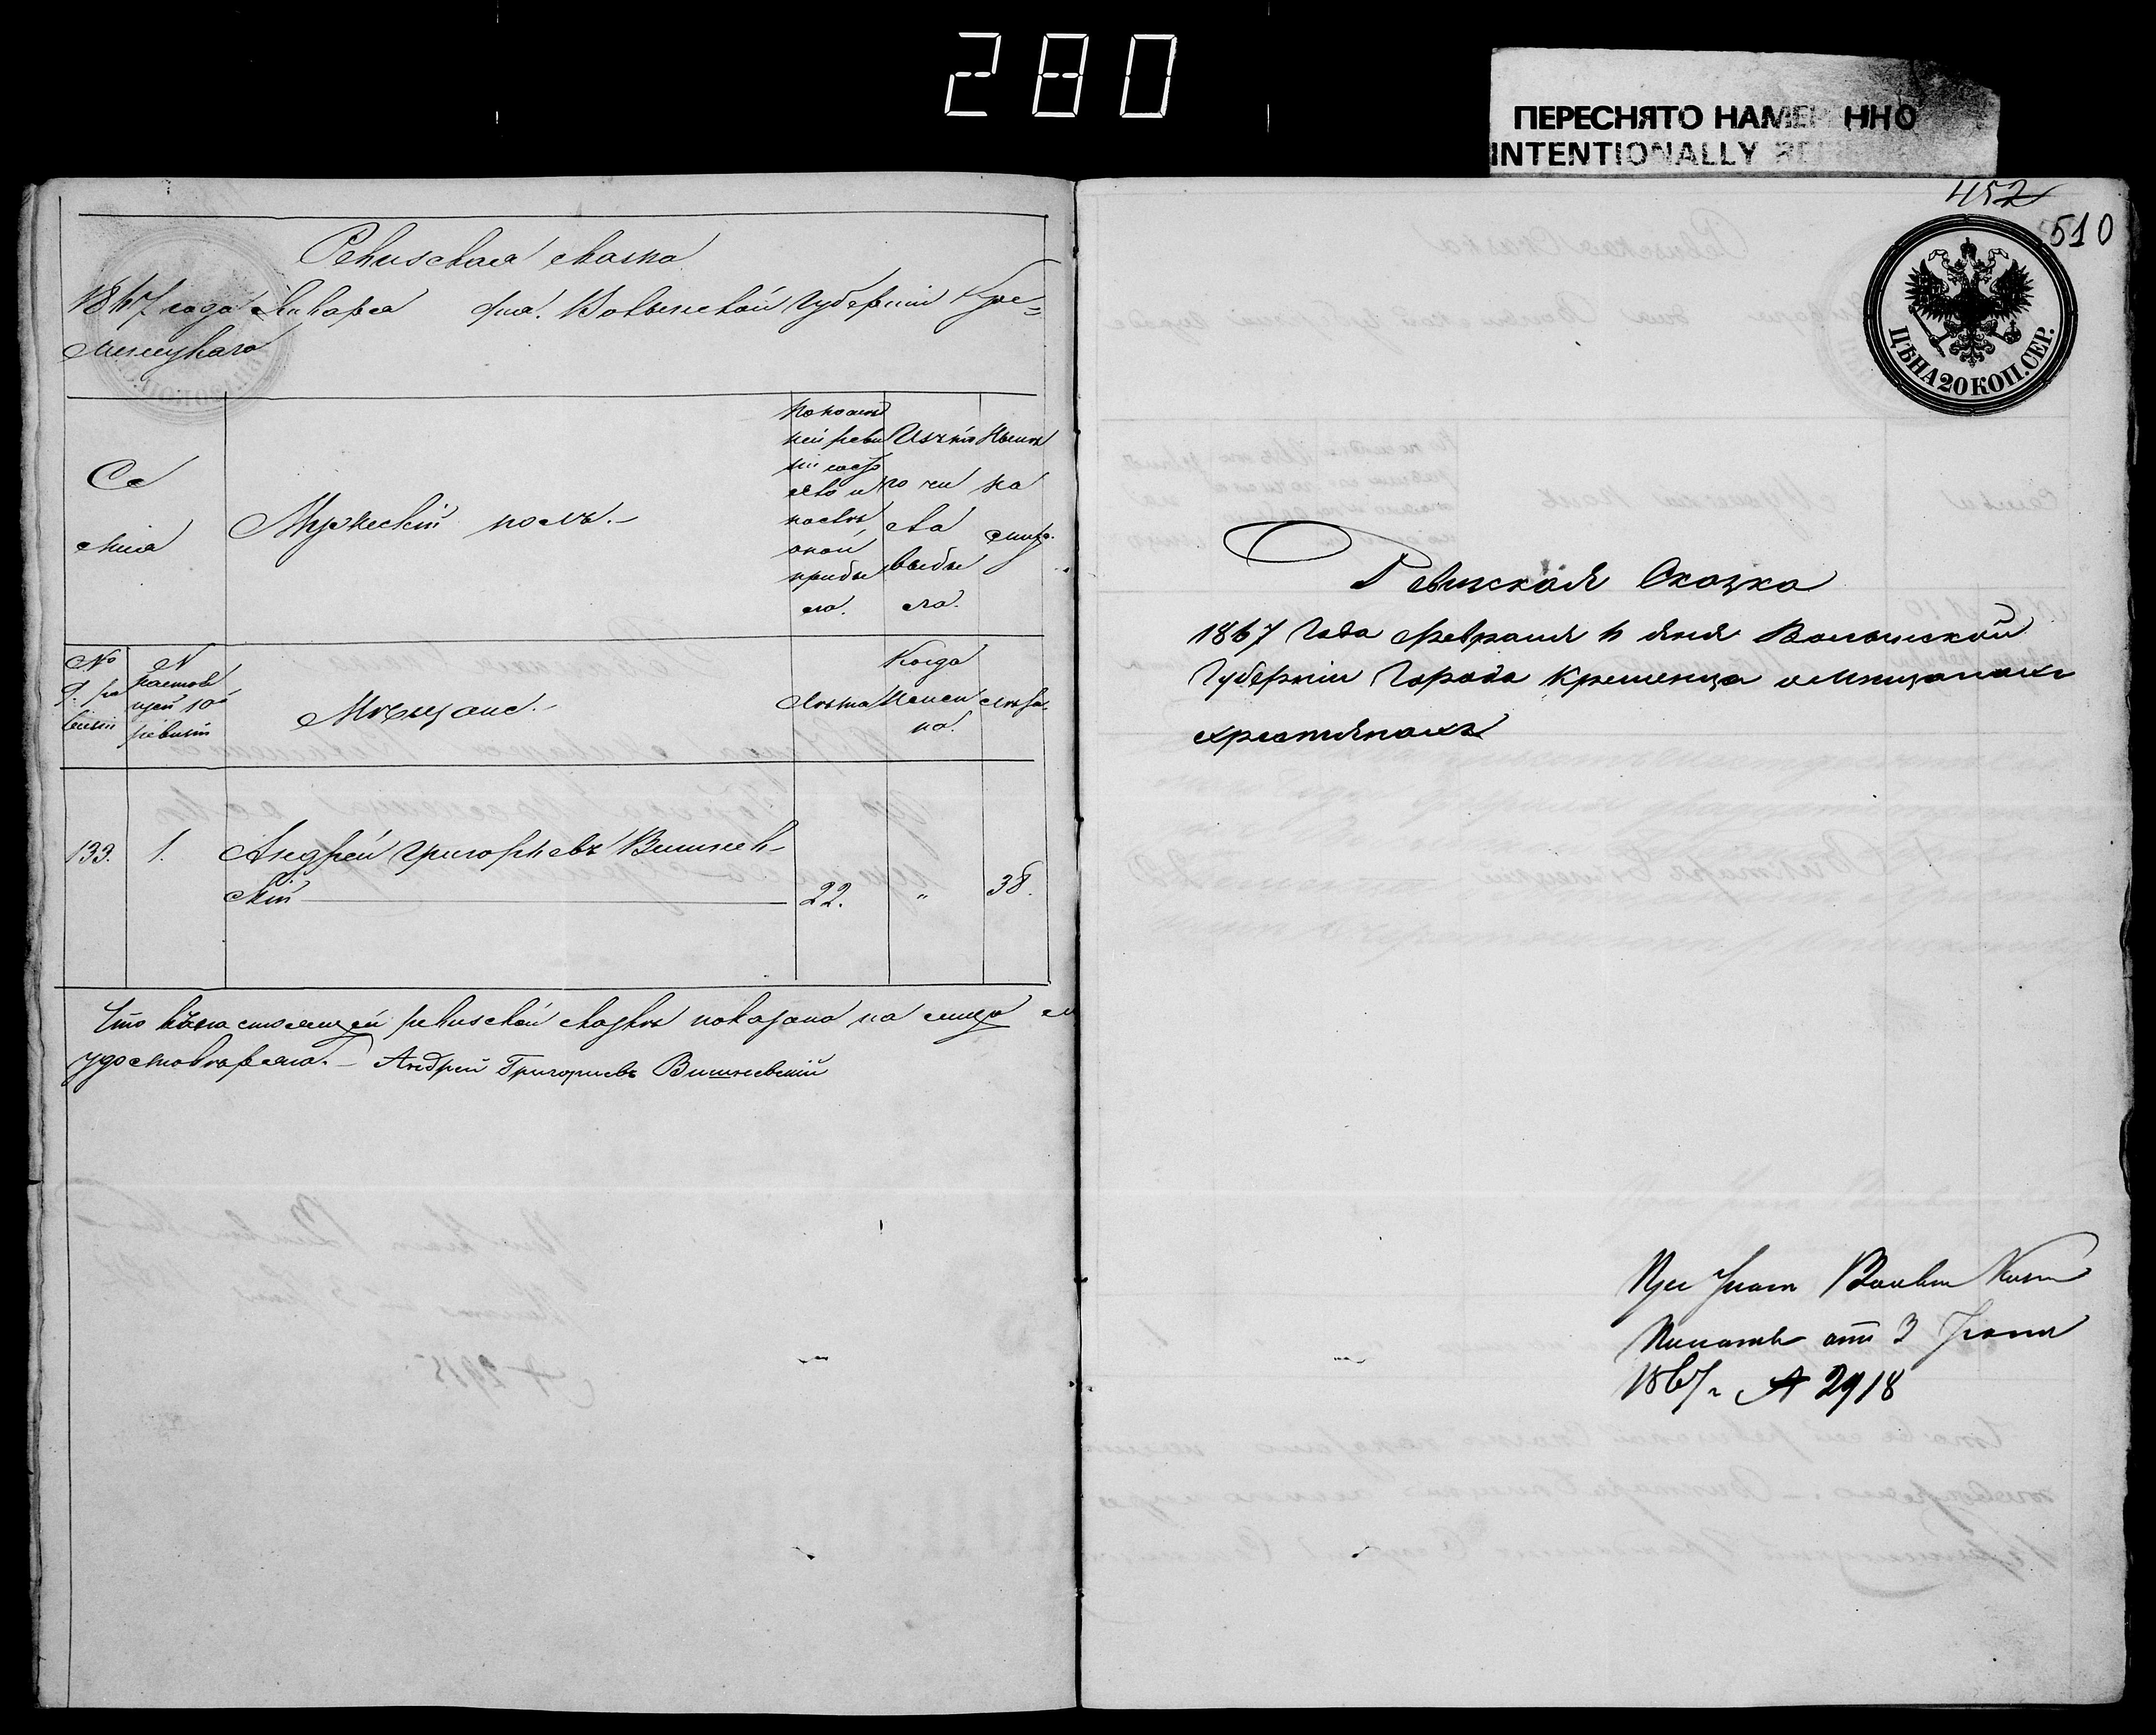 280
ПЕРЕСНЯТО НАМЕР ННО
INTENTIONALLY RE
Ревизская сказка
1867 года Января дня. Волынской Губерніи Кре=
менецкаго
Се
мьи
Мужескій полъ.
По послѣд
ней реви
зіи состо
яло и
послѣ
оной
прибы
ло.
Изъ то
го чи
сла
выбы
ло.
Нынѣ
на
лицо.
№
9. ре
визіи
№
настоя
щей 10й
ревизіи
Мѣщане.
Лѣта
Когда
имен
но.
Лѣта.
133. 1. Андрей Григорьевъ Вишнев-
скій 22. „ 38.
Что въ настоящей ревизской сказкѣ показано на лицо
удостовѣряю. – Андрей Григориевъ Вишневский
452
510
ЦѢНА 20 КОП. СЕР.
Ревизская Сказка
1867 Года Февраля дня Волынской
Губерніи Города Кременца о мѣщанахъ
христіянахъ
При Указѣ Волын Казен
Палаты отъ 3 Іюня
1867 г № 2918